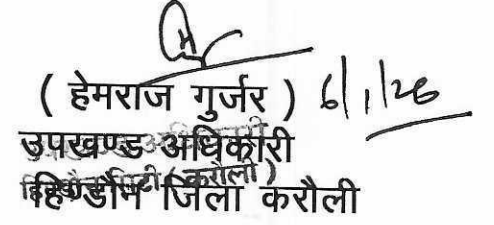 ( हेमराज गुर्जर ) 6/1/26
उपखण्ड अधिकारी
हिण्डौन जिला करौली